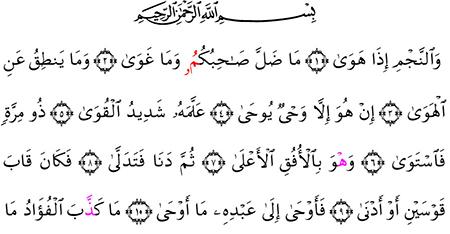 بِسْمِ ٱللَّهِ ٱلرَّحْمَٰنِ ٱلرَّحِيمِ
وَٱلنَّجْمِ إِذَا هَوَىٰ ﴿١﴾ مَا ضَلَّ صَٰحِبُكُمُۥ وَمَا غَوَىٰ ﴿٢﴾ وَمَا يَنطِقُ عَنِ
ٱلْهَوَىٰ ﴿٣﴾ إِنْ هُوَ إِلَّا وَحْىٌ يُوحَىٰ ﴿٤﴾ عَلَّمَهُۥ شَدِيدُ ٱلْقُوَىٰ ﴿٥﴾ ذُو مِرَّةٍ
فَٱسْتَوَىٰ ﴿٦﴾ وَهْوَ بِٱلْأُفُقِ ٱلْأَعْلَىٰ ﴿٧﴾ ثُمَّ دَنَا فَتَدَلَّىٰ ﴿٨﴾ فَكَانَ قَابَ
قَوْسَيْنِ أَوْ أَدْنَىٰ ﴿٩﴾ فَأَوْحَىٰ إِلَىٰ عَبْدِهِۦ مَا أَوْحَىٰ ﴿١٠﴾ مَا كَذَّبَ ٱلْفُؤَادُ مَا